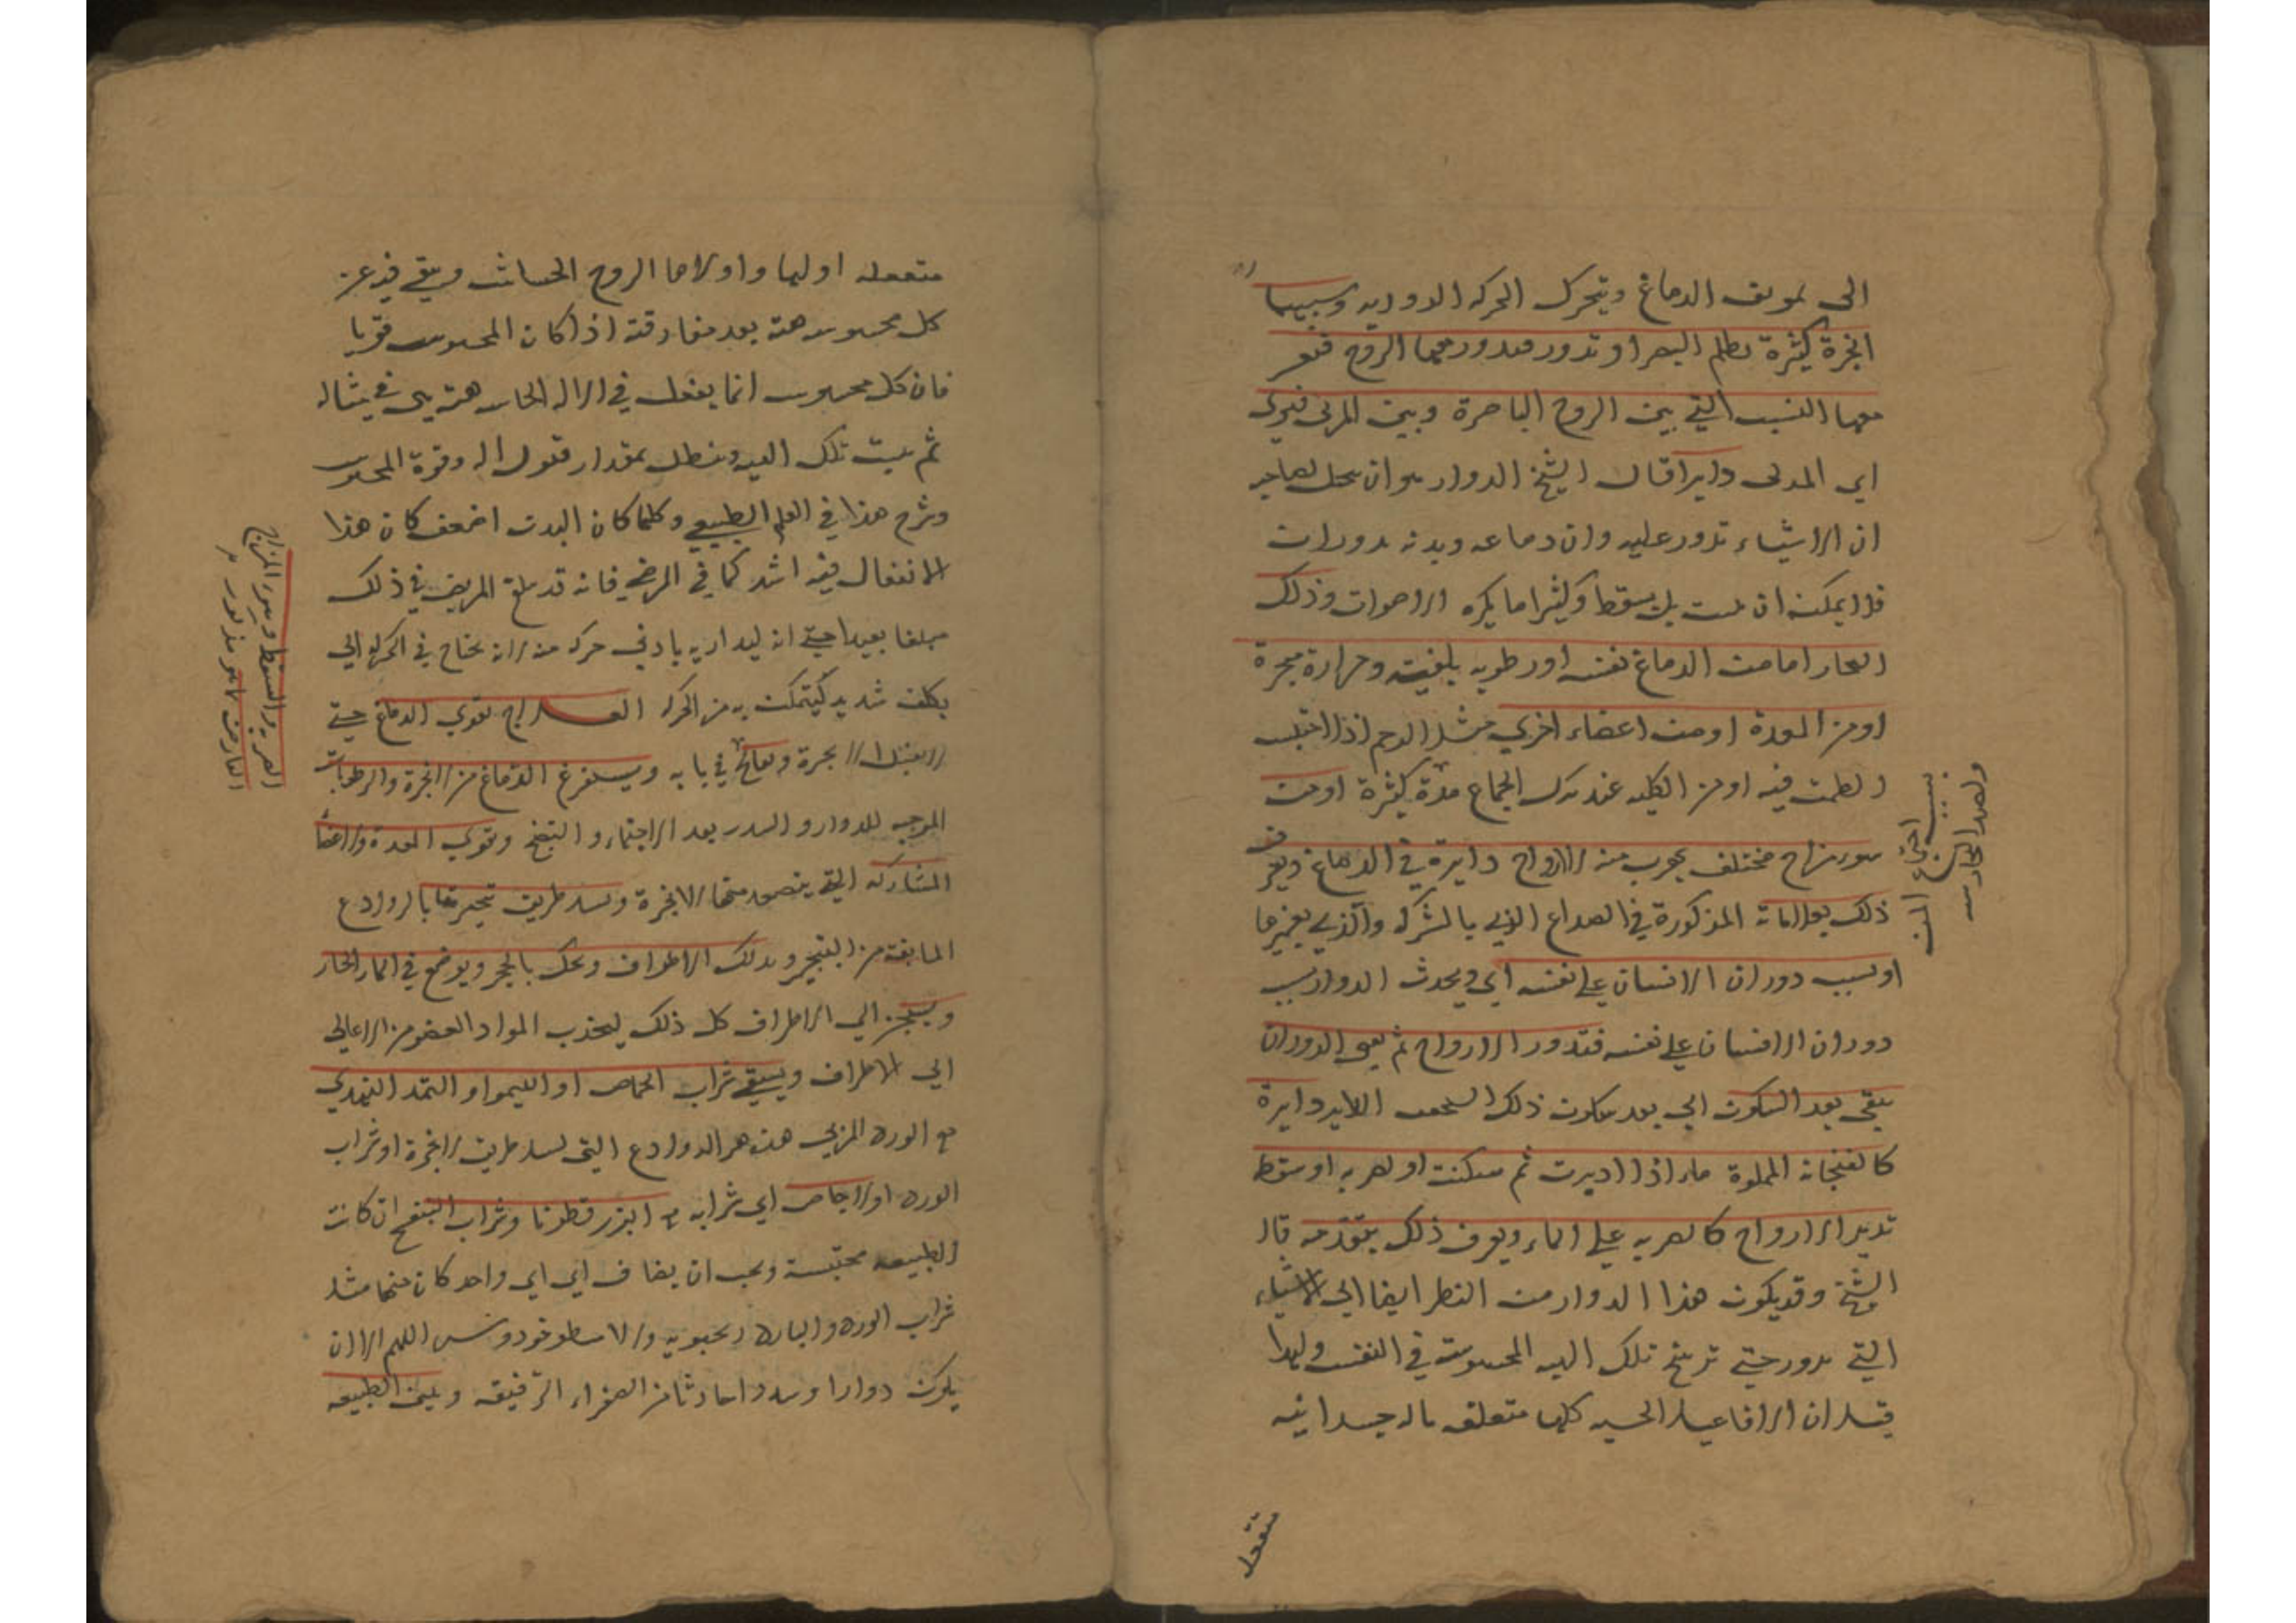 الى تجويف الدماغ ويتحرك الحركه الدوريه وسببها
ابخرة كثيرة تظلم البصر او تدور فيدور معها الروح فتغير
معها النسب التي بين الروح الباصرة وبين المرئى فيرى
اي المرئى دايرا قال الشيخ الدوار هو ان يتخيل لصاحبه
ان الاشياء تدور عليه وان دماغه وبدنه يدوران
فلا يمكنه ان يثبت بل يسقط وكثيرا ما يكره الاصوات وذلك
البخار اما من الدماغ نفسه اورطوبه بلغميه وحرارة مبخرة
اومن المعدة اومن اعضاء اخري مثل الرحم اذا احتبس
الطمث فيه اومن الكليه عند ترك الجماع مدة كثيرة اومن
سوء مزاج مختلف يهرب منه الارواح دايرة في الدماغ ويعرف
ذلك بعلاماته المذكورة في الصداع الذي بالشركه والذي بغيرها
اوبسبب دوران الانسان علي نفسه اي ويحدث الدوار بسبب
دوران الانسان علي نفسه فتدور الارواح ثم يبقى الدوران
يبقى بعد السكون اي بعد سكون ذلك الشخص الداير دايرة
كالفنجانه المملوة ماء اذا اديرت ثم سكنت اولضربه اوسقطه
تدير الارواح كالضربه علي الماء ويعرف ذلك بتقدمه قال
الشيخ وقد يكون هذا الدوار من النظر ايضا الي الاشياء
التي تدور حتي ترسخ تلك الهيه المحسوسه في النفس ولهذا
قيل ان الافاعيل الحسيه كلها متعلقه باله جسدانيه
بسبب اجتماع المنى
ولصعد البخار منه
منفعله
منفعله اوليها واولاها الروح الحساس ويبقى فيه عن
كل محسوس هيئة بعد مفارقته اذا كان المحسوس قويا
فان كل محسوس انما يفعل في الاله الحاسه هيئة هى مثاله
ثم يثبت تلك الهيه وتبطل بمقدار قبول الاله وقوة المحسوس
وشرح هذا في العلم الطبيعي وكلما كان البدن اضعف كان هذا
الانفعال فيه اشد كما في المرضي فانه قد يبلغ المريض في ذلك
مبلغا بعيدا حتي انه ليدار به بادني حركه منه لانه يحتاج في الحركه الي
تكلف شديد ليتمكن به من الحركه العلاج يقوي الدماغ حتي
لا يقبل الابخرة ويعالج في بابه ويستفرغ الدماغ من الابخرة والرطوبات
الموجبه للدوار والسدر بعد الاحتماء والنضج ويقوي المعدة والاعضا
المشاركه التي يتصعد منها الابخرة ويسد طريق تبخيرها بالروادع
المانعة من التبخير ويدلك الاطراف ويحك بالحجر ويوضع في الماء الحار
الي الاطراف كل ذلك ليجذب المواد العضو من الاعالي
الي الاطراف ويسقي شراب الحماض او الليمو او التمر الهندي
مع الورد المربي هذه هي الروادع التي تسد طريق الابخرة اوشراب
الورد اوالاجاص اي شرابه مع البزر قطونا وشراب البنفسج ان كانت
الطبيعه محتبسة ويجب ان يضاف اي اي واحد كان منها مثل
شراب الورد والبارد والاسطوخودوس اللهم الا ان
يكون دوارا وسدرا حادثا من الصفراء الرقيقه ويلين الطبيعه
الضربه والسقطه وسوء المزاج